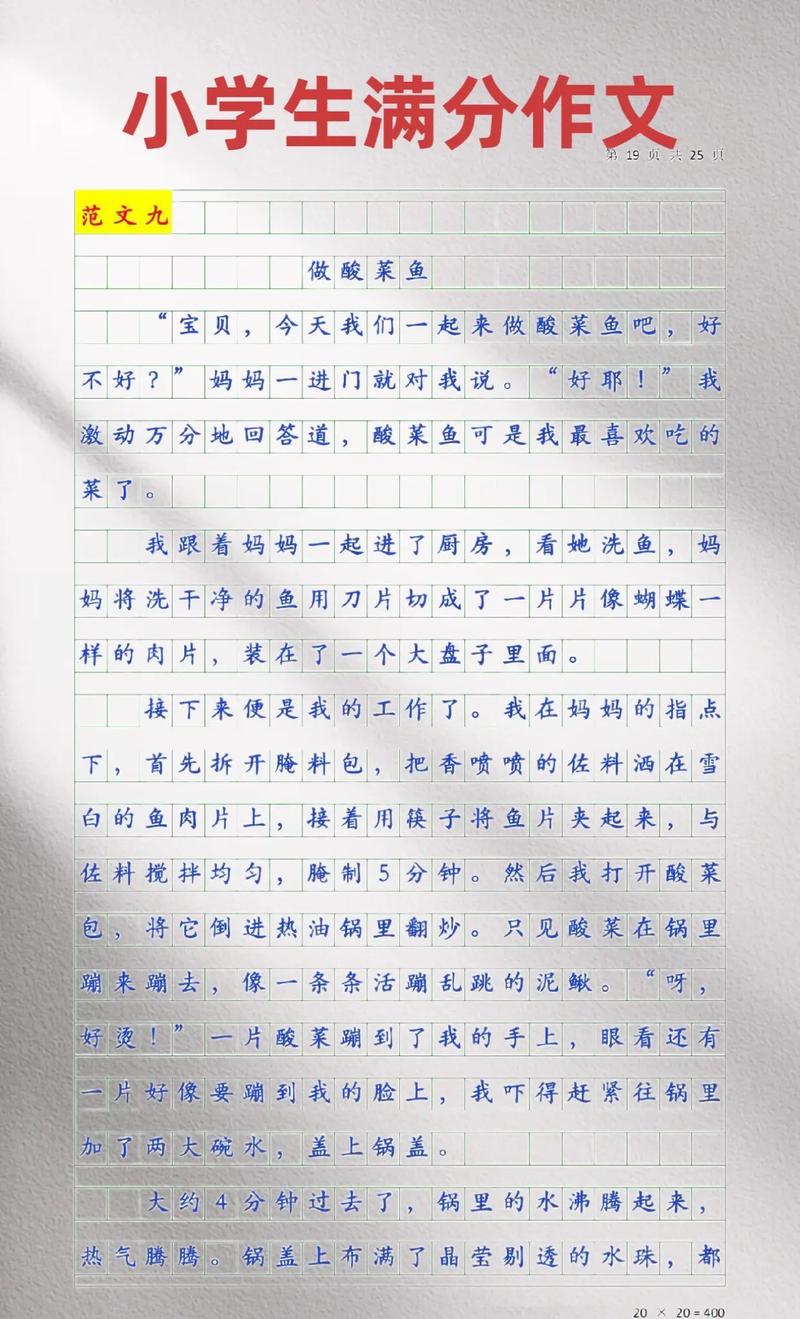 小学生满分作文
第 19 页 共 25 页
范文九
做酸菜鱼
“宝贝，今天我们一起来做酸菜鱼吧，好
不好？”妈妈一进门就对我说。“好耶！”我
激动万分地回答道，酸菜鱼可是我最喜欢吃的
菜了。
我跟着妈妈一起进了厨房，看她洗鱼，妈
妈将洗干净的鱼用刀片切成了一片片像蝴蝶一
样的肉片，装在了一个大盘子里面。
接下来便是我的工作了。我在妈妈的指点
下，首先拆开腌料包，把香喷喷的佐料洒在雪
白的鱼肉片上，接着用筷子将鱼片夹起来，与
佐料搅拌均匀，腌制5分钟。然后我打开酸菜
包，将它倒进热油锅里翻炒。只见酸菜在锅里
蹦来蹦去，像一条条活蹦乱跳的泥鳅。“呀，
好烫！”一片酸菜蹦到了我的手上，眼看还有
一片好像要蹦到我的脸上，我吓得赶紧往锅里
加了两大碗水，盖上锅盖。
大约4分钟过去了，锅里的水沸腾起来，
热气腾腾。锅盖上布满了晶莹剔透的水珠，都
20 × 20 = 400